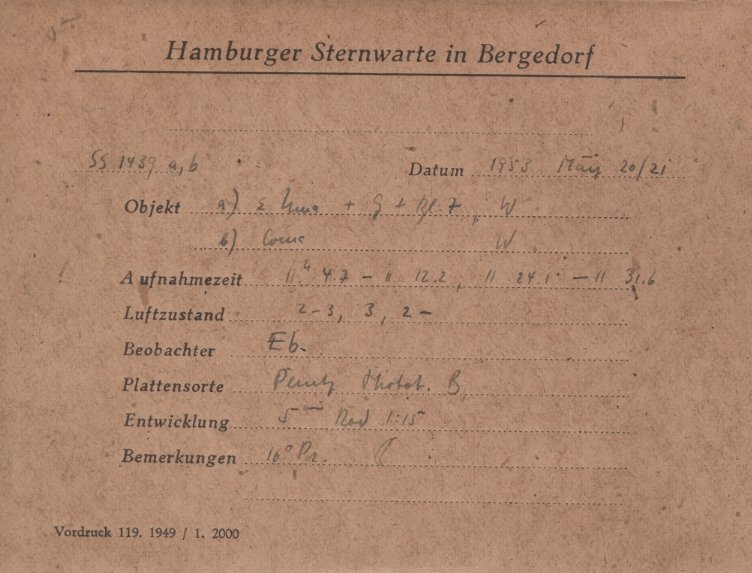 Hamburger Sternwarte in Bergedorf
SS 1439 a, b
Datum 1953 März 20/21
Objekt a) + G + 7 W
b) Coma W
Aufnahmezeit 11h 4.7 – 11 12.2, 11 24.1 – 11 31.6
Luftzustand 2-3, 3, 2-
Beobachter Eb.
Plattensorte Perutz B
Entwicklung 5 Rod 1:15
Bemerkungen 16° Pr.
Vordruck 119. 1949 / 1. 2000